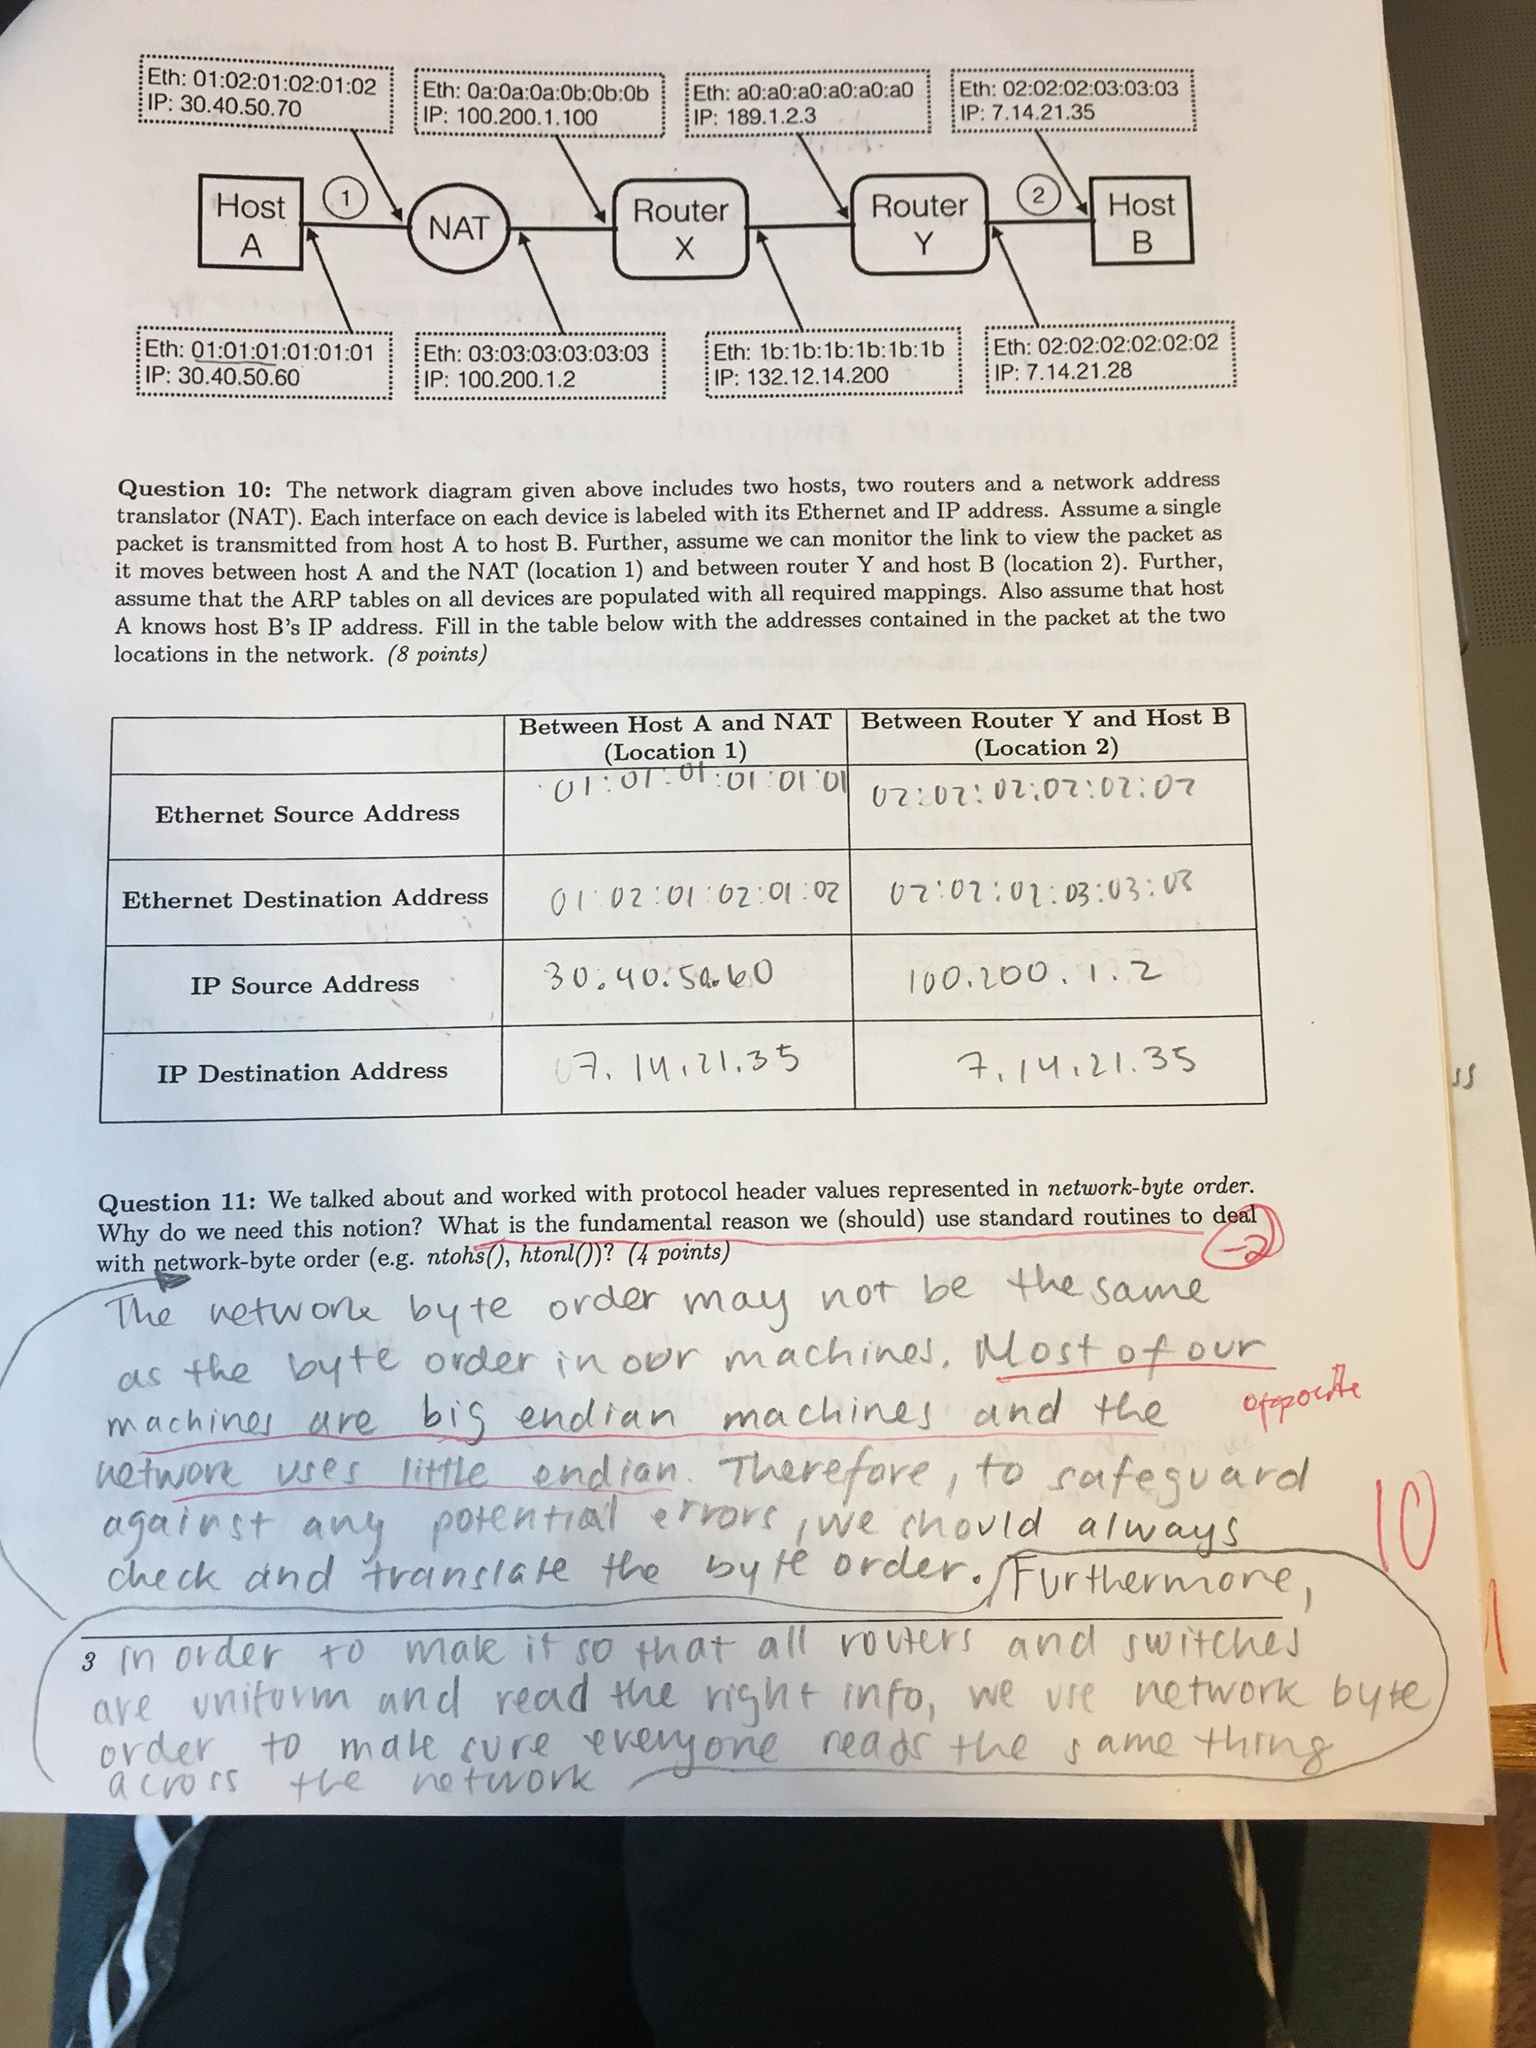 Eth: 01:02:01:02:01:02
IP: 30.40.50.70
Eth: 0a:0a:0a:0b:0b:0b
IP: 100.200.1.100
Eth: a0:a0:a0:a0:a0:a0
IP: 189.1.2.3
Eth: 02:02:02:03:03:03
IP: 7.14.21.35
Host
A
1
NAT
Router
X
Router
Y
2
Host
B
Eth: 01:01:01:01:01:01
IP: 30.40.50.60
Eth: 03:03:03:03:03:03
IP: 100.200.1.2
Eth: 1b:1b:1b:1b:1b:1b
IP: 132.12.14.200
Eth: 02:02:02:02:02:02
IP: 7.14.21.28
Question 10: The network diagram given above includes two hosts, two routers and a network address
translator (NAT). Each interface on each device is labeled with its Ethernet and IP address. Assume a single
packet is transmitted from host A to host B. Further, assume we can monitor the link to view the packet as
it moves between host A and the NAT (location 1) and between router Y and host B (location 2). Further,
assume that the ARP tables on all devices are populated with all required mappings. Also assume that host
A knows host B's IP address. Fill in the table below with the addresses contained in the packet at the two
locations in the network. (8 points)
Between Host A and NAT
(Location 1)
Between Router Y and Host B
(Location 2)
Ethernet Source Address
01:01:01:01:01:01
02:02:02:02:02:02
Ethernet Destination Address
01:02:01:02:01:02
02:02:02:03:03:03
IP Source Address
30.40.50.60
100.200.1.2
IP Destination Address
7.14.21.35
7.14.21.35
Question 11: We talked about and worked with protocol header values represented in network-byte order.
Why do we need this notion? What is the fundamental reason we (should) use standard routines to deal
with network-byte order (e.g. ntohs(), htonl())? (4 points)
-2
The network byte order may not be the same
as the byte order in our machines. Most of our
machines are big endian machines and the
opposite
network uses little endian. Therefore, to safeguard
against any potential errors, we should always
10
check and translate the byte order. Furthermore,
3 in order to make it so that all routers and switches
are uniform and read the right info, we use network byte
order to make sure everyone reads the same thing
across the network